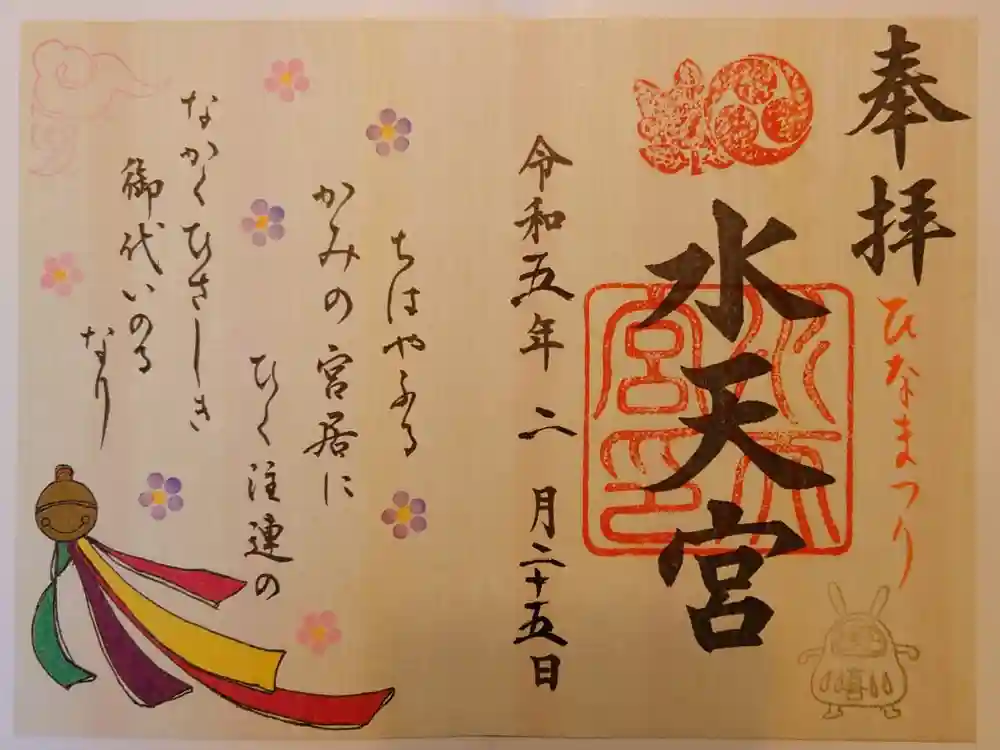 奉拝
ひなまつり
水天宮
令和五年 二月二十五日
ちはやふる
かみの宮居に
ひく注連の
なかくひさしき
御代いのる
なり